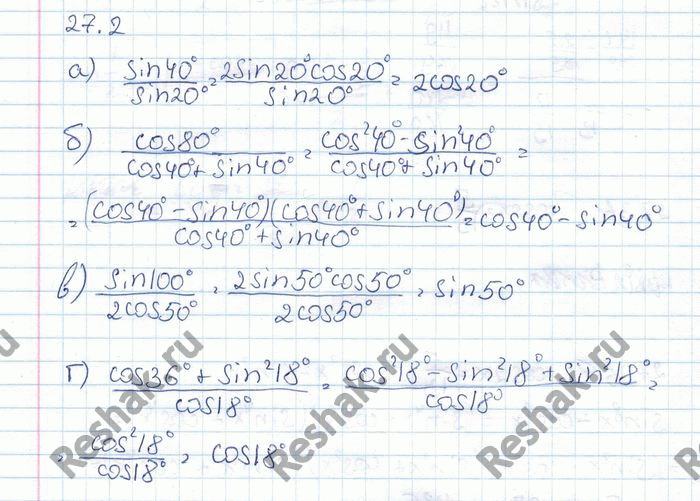 27.2
а) sin40°/sin20° = 2sin20°cos20°/sin20° = 2cos20°
б) cos80°/(cos40°+sin40°) = (cos²40°-sin²40°)/(cos40°+sin40°) =
= (cos40°-sin40°)(cos40°+sin40°)/(cos40°+sin40°) = cos40°-sin40°
в) sin100°/2cos50° = 2sin50°cos50°/2cos50° = sin50°
г) (cos36°+sin²18°)/cos18° = (cos²18°-sin²18°+sin²18°)/cos18° =
= cos²18°/cos18° = cos18°
Reshak.ru
Reshak.ru
Reshak.ru